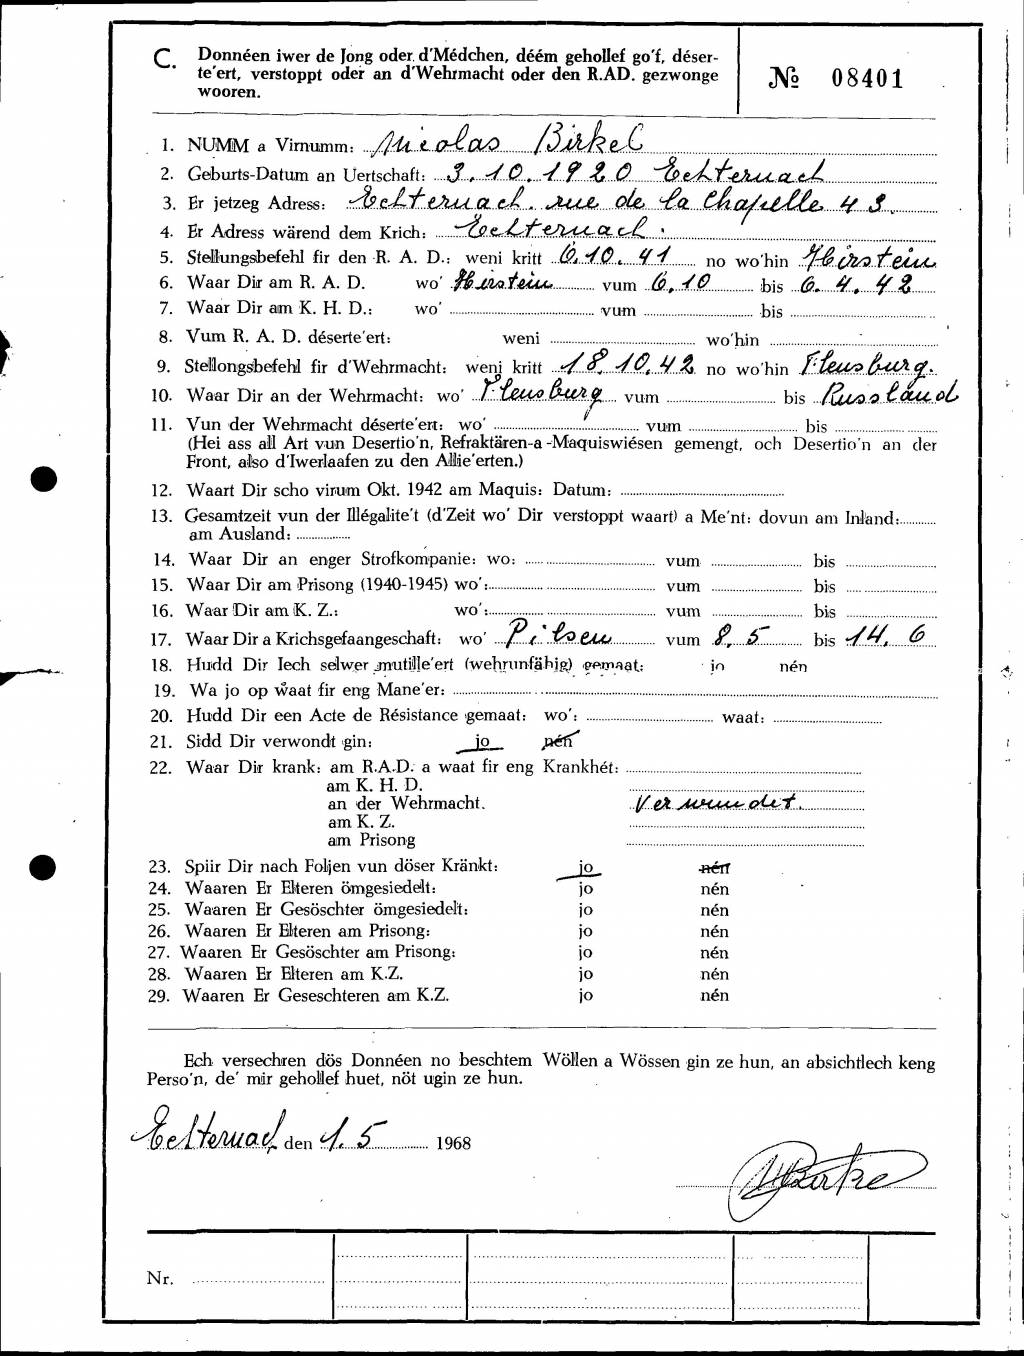 C. Donnéen iwer de Jong oder d'Médchen, déém gehollef go'f, déser-
te'ert, verstoppt oder an d'Wehrmacht oder den R.AD. gezwonge
wooren.
№ 08401
1. NUMM a Virnumm: Nicolas Birkel
2. Geburts-Datum an Uertschaft: 3.10.1920 Echternach
3. Er jetzeg Adress: Echternach. rue de la Chapelle 43.
4. Er Adress wärend dem Krich: Echternach.
5. Stellungsbefehl fir den R. A. D.: weni kritt 6.10.41 no wo'hin Hirstein
6. Waar Dir am R. A. D. wo' Hirstein vum 6.10 bis 6.4.42
7. Waar Dir am K. H. D.: wo' vum bis
8. Vum R. A. D. déserte'ert: weni wo'hin
9. Stellongsbefehl fir d'Wehrmacht: weni kritt 18.10.42 no wo'hin Flensburg.
10. Waar Dir an der Wehrmacht: wo' Flensburg vum bis Russland
11. Vun der Wehrmacht déserte'ert: wo' vum bis
(Hei ass all Art vun Desertio'n, Refraktären-a-Maquiswiésen gemengt, och Desertio'n an der
Front, also d'Iwerlaafen zu den Allie'erten.)
12. Waart Dir scho virum Okt. 1942 am Maquis: Datum:
13. Gesamtzeit vun der Illégalite't (d'Zeit wo' Dir verstoppt waart) a Me'nt: dovun am Inland:
am Ausland:
14. Waar Dir an enger Strofkompanie: wo: vum bis
15. Waar Dir am Prisong (1940-1945) wo': vum bis
16. Waar Dir am K. Z.: wo': vum bis
17. Waar Dir a Krichsgefaangeschaft: wo' Pilsen vum 8.5 bis 14.6
18. Hudd Dir Iech selwer mutille'ert (wehrunfähig) gemaat: jo nén
19. Wa jo op waat fir eng Mane'er:
20. Hudd Dir een Acte de Résistance gemaat: wo': waat:
21. Sidd Dir verwondt gin: jo nén
22. Waar Dir krank: am R.A.D. a waat fir eng Krankhét:
am K. H. D.
an der Wehrmacht. Verwundet.
am K. Z.
am Prisong
23. Spiir Dir nach Foljen vun döser Kränkt: jo nén
24. Waaren Er Elteren ömgesiedelt: jo nén
25. Waaren Er Gesöschter ömgesiedelt: jo nén
26. Waaren Er Elteren am Prisong: jo nén
27. Waaren Er Gesöschter am Prisong: jo nén
28. Waaren Er Elteren am K.Z. jo nén
29. Waaren Er Geseschteren am K.Z. jo nén
Ech versechren dös Donnéen no beschtem Wöllen a Wössen gin ze hun, an absichtlech keng
Perso'n, de' mir gehollef huet, nöt ugin ze hun.
Echternach den 1.5 1968
Nr.